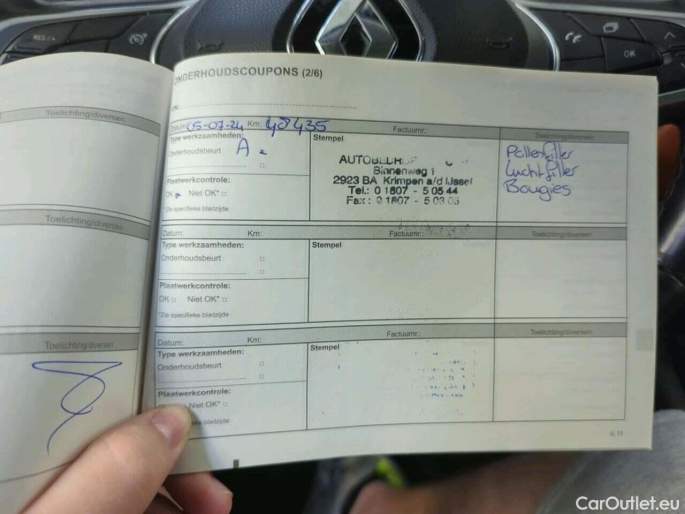 RES/+
OK
ONDERHOUDSCOUPONS (2/6)
Toelichting/diversen
Datum: 05-07-24 Km: 48435 Factuurnr.: Toelichting/diversen
Type werkzaamheden:
Onderhoudsbeurt A
Plaatwerkcontrole:
OK Niet OK*
*Zie specifieke bladzijde
Stempel
Binnenweg 1
2923 BA Krimpen a/d IJssel
Tel.: 0 1807 - 5 05 44
Fax: 0 1807 - 5
Pollenfilter
Luchtfilter
Bougies
Toelichting/diversen
Datum: Km: Factuurnr.: Toelichting/diversen
Type werkzaamheden:
Onderhoudsbeurt
Plaatwerkcontrole:
OK Niet OK*
*Zie specifieke bladzijde
Stempel
Toelichting/diversen
Datum: Km: Factuurnr.: Toelichting/diversen
Type werkzaamheden:
Onderhoudsbeurt
Plaatwerkcontrole:
Niet OK*
bladzijde
Stempel
CarOutlet.eu